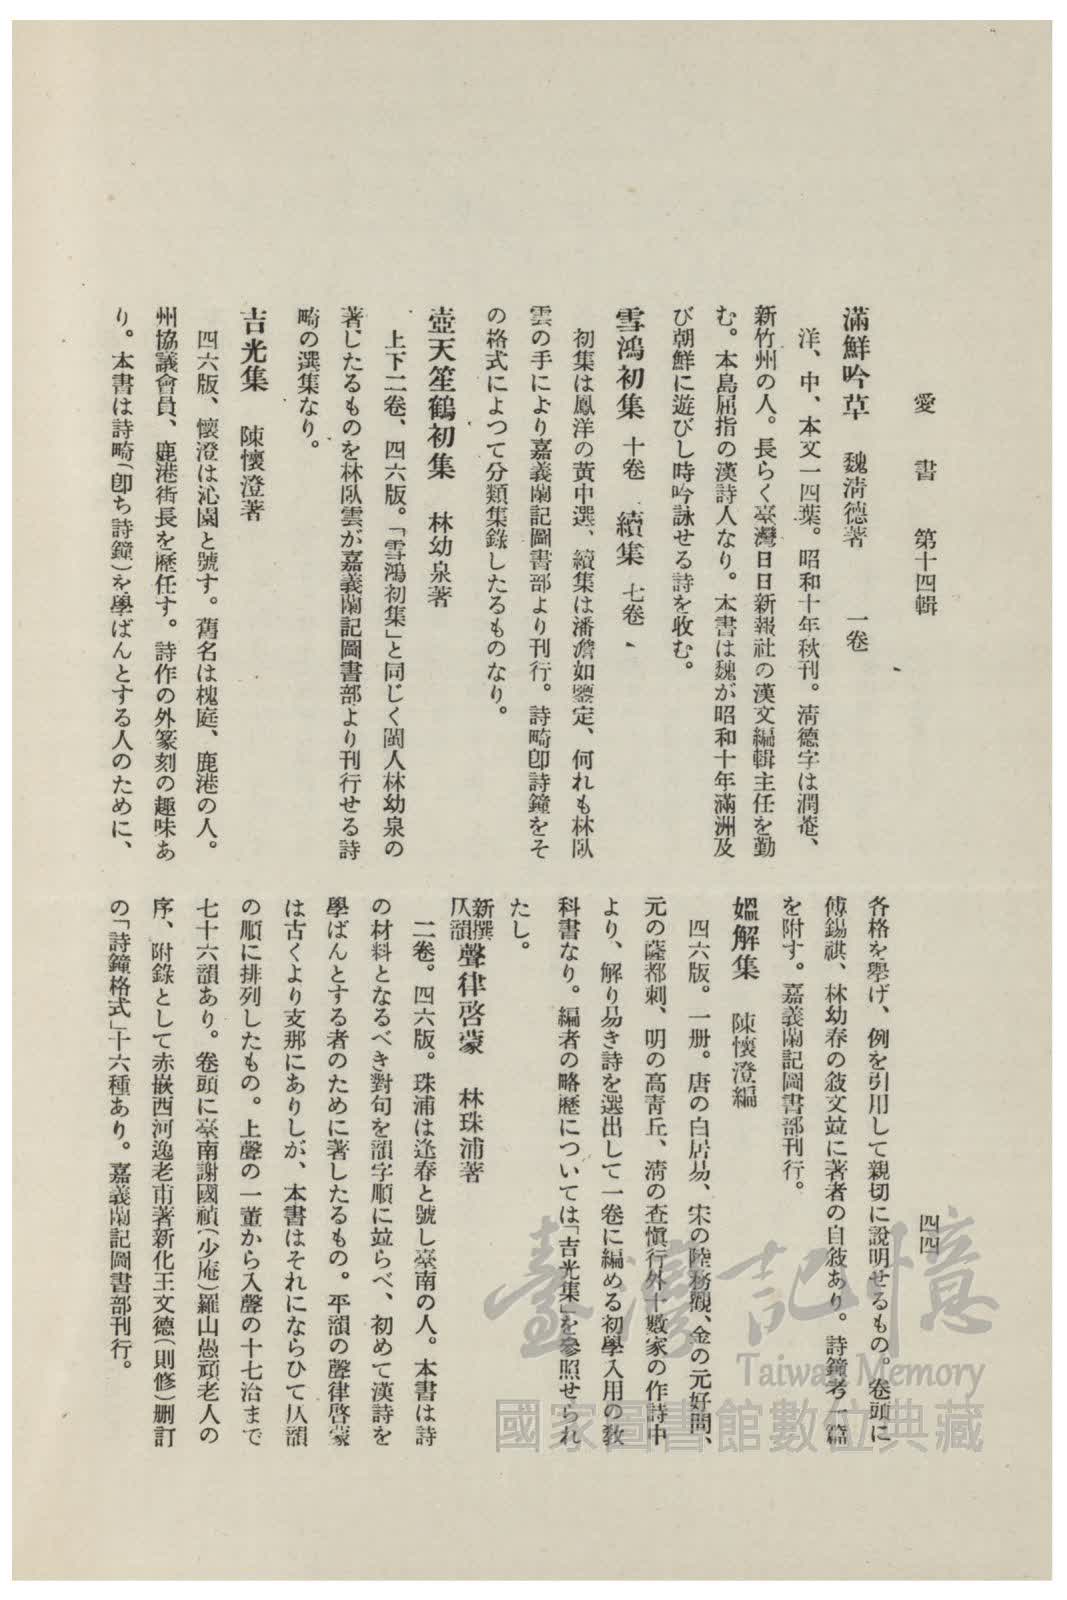 愛書　第十四輯
滿鮮吟草　魏淸德著　一卷
洋、中、本文一四葉。昭和十年秋刊。淸德字は潤菴、
新竹州の人。長らく臺灣日日新報社の漢文編輯主任を勤
む。本島屈指の漢詩人なり。本書は魏が昭和十年滿洲及
び朝鮮に遊びし時吟詠せる詩を收む。
雪鴻初集　十卷　續集　七卷
初集は鳳洋の黃中選、續集は潘澹如鑒定、何れも林臥
雲の手により嘉義蘭記圖書部より刊行。詩畸卽詩鐘をそ
の格式によつて分類集錄したるものなり。
壺天笙鶴初集　林幼泉著
上下二卷、四六版。「雪鴻初集」と同じく閩人林幼泉の
著じたるものを林臥雲が嘉義蘭記圖書部より刊行せる詩
畸の選集なり。
吉光集　陳懷澄著
四六版、懷澄は沁園と號す。舊名は槐庭、鹿港の人。
州協議會員、鹿港街長を歷任す。詩作の外篆刻の趣味あ
り。本書は詩畸(卽ち詩鐘)を學ばんとする人のために、
各格を擧げ、例を引用して親切に說明せるもの。卷頭に
傅錫祺、林幼春の敍文竝に著者の自敍あり。詩鐘考一篇
を附す。嘉義蘭記圖書部刊行。
媼解集　陳懷澄編
四六版。一册。唐の白居易、宋の陸務觀、金の元好問、
元の薩都刺、明の高靑丘、淸の查愼行外十數家の作詩中
より、解り易き詩を選出して一卷に編める初學入用の敎
科書なり。編者の略歷については「吉光集」を參照せられ
たし。
新撰仄韻聲律啓蒙　林珠浦著
二卷。四六版。珠浦は逢春と號し臺南の人。本書は詩
の材料となるべき對句を韻字順に竝らべ、初めて漢詩を
學ばんとする者のために著したるもの。平韻の聲律啓蒙
は古くより支那にありしが、本書はそれにならひて仄韻
の順に排列したもの。上聲の一董から入聲の十七洽まで
七十六韻あり。卷頭に臺南謝國禎(少庵)羅山愚頑老人の
序、附錄として赤嵌西河逸老甫著新化王文德(則修)删訂
の「詩鐘格式」十六種あり。嘉義蘭記圖書部刊行。
四四
臺灣記憶
Taiwan Memory
國家圖書館數位典藏